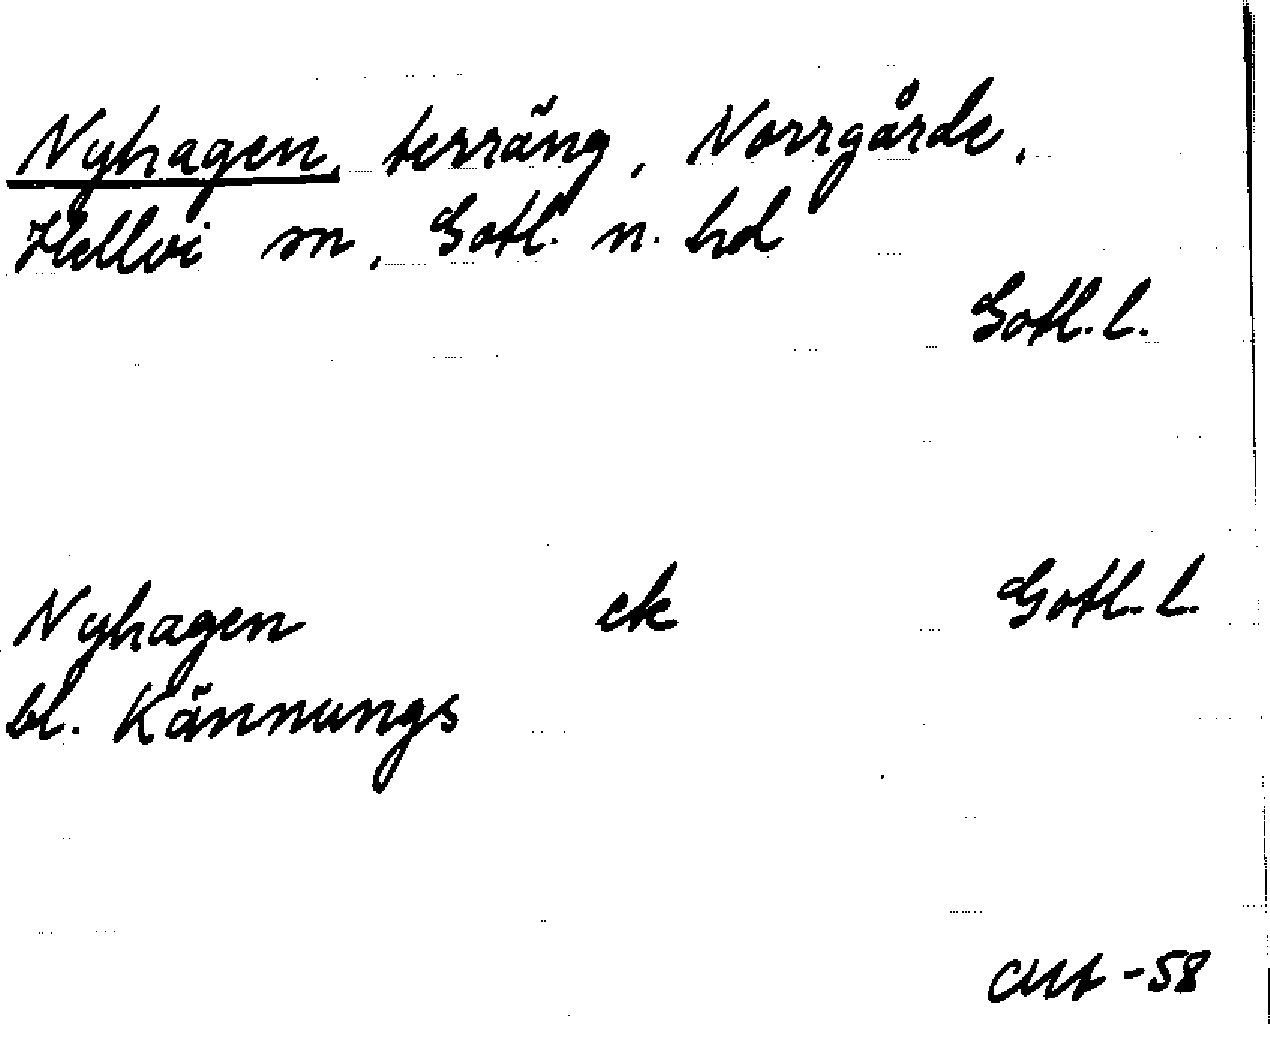 Nyhagen, terräng, Norrgårde,
Hellvi sn, Gotl. n. hd
Gotl. l.
Nyhagen ek Gotl. l.
bl. Kännungs
-58